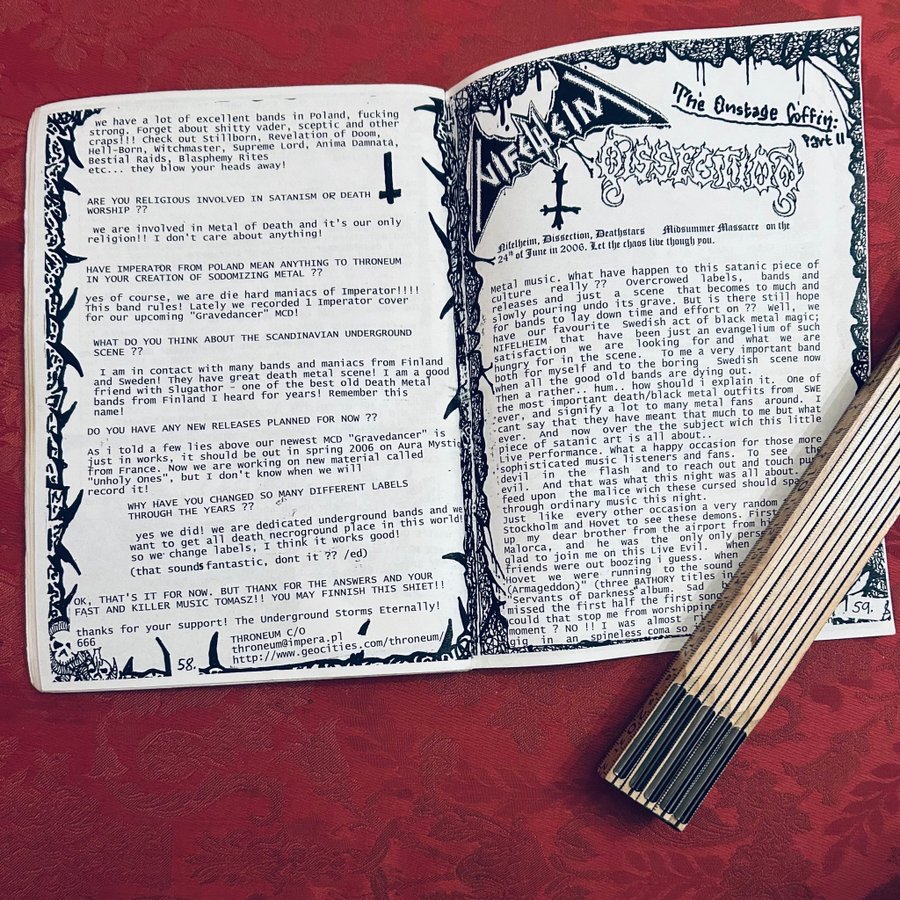 we have a lot of excellent bands in Poland, fucking
strong. Forget about shitty vader, sceptic and other
craps!!! Check out Stillborn, Revelation of Doom,
Hell-Born, Witchmaster, Supreme Lord, Anima Damnata,
Bestial Raids, Blasphemy Rites
etc... they blow your heads away!
ARE YOU RELIGIOUS INVOLVED IN SATANISM OR DEATH
WORSHIP ??
we are involved in Metal of Death and it's our only
religion!! I don't care about anything!
HAVE IMPERATOR FROM POLAND MEAN ANYTHING TO THRONEUM
IN YOUR CREATION OF SODOMIZING METAL ??
yes of course, we are die hard maniacs of Imperator!!!!
This band rules! Lately we recorded 1 Imperator cover
for our upcoming "Gravedancer" MCD!
WHAT DO YOU THINK ABOUT THE SCANDINAVIAN UNDERGROUND
SCENE ??
I am in contact with many bands and maniacs from Finland
and Sweden! They have great death metal scene! I am a good
friend with Slugathor - one of the best old Death Metal
bands from Finland I heard for years! Remember this
name!
DO YOU HAVE ANY NEW RELEASES PLANNED FOR NOW ??
As i told a few lies above our newest MCD "Gravedancer" is
just in works, it should be out in spring 2006 on Aura Mystic
from France. Now we are working on new material called
"Unholy Ones", but I don't know when we will
record it!
WHY HAVE YOU CHANGED SO MANY DIFFERENT LABELS
THROUGH THE YEARS ??
yes we did! we are dedicated underground bands and we
want to get all death necroground place in this world!
so we change labels, I think it works good!
(that sounds fantastic, dont it ?? /ed)
OK, THAT'S IT FOR NOW. BUT THANX FOR THE ANSWERS AND YOUR
FAST AND KILLER MUSIC TOMASZ!! YOU MAY FINNISH THIS SHIET!!
thanks for your support! The Underground Storms Eternally!
666
THRONEUM C/O
throneum@impera.pl
http://www.geocities.com/throneum/
58.
NIFELHEIM
The Onstage Coffin:
Part II
DISSECTION
Nifelheim, Dissection, Deathstars Midsummer Massacre on the
24th of June in 2006. Let the chaos like though you.
Metal music. What have happen to this satanic piece of
culture really ?? overcrowed labels, bands and
releases and just a scene that becomes to much and
slowly pouring undo its grave. But is there still hope
for bands to lay down time and effort on ?? Well, we
have our favourite Swedish act of black metal magic;
NIFELHEIM that have been just an evangelium of such
satisfaction we are looking for and what we are
hungry for in the scene. To me a very important band
both for myself and to the boring Swedish scene now
when all the good old bands are dying out.
Then a rather.. hum.. how should i explain it. One of
the most important death/black metal outfits from SWE
ever, and signify a lot to many metal fans around. I
cant say that they have meant that much to me but what
ever. And now over the the subject wich this little
piece of satanic art is all about..
Live Performance. What a happy occasion for those more
sophisticated music listeners and fans. To see the
devil in the flash and to reach out and touch pure
evil. And that was what this night was all about.
feed upon the malice wich these cursed should
through ordinary music this night.
Just like every other occasion a very random
Stockholm and Hovet to see these demons. First
up my dear brother from the airport from
Malorca, and he was the only
glad to join me on this Live Evil. When
friends were out boozing i guess. When
Hovet we were running to the sound
(Armageddon)" (three BATHORY titles
"Servants of Darkness" album. Sad
missed the first half the first song
could that stop me from worshipping
moment ? NO ! I was almost
gig in an spineless coma so
59.